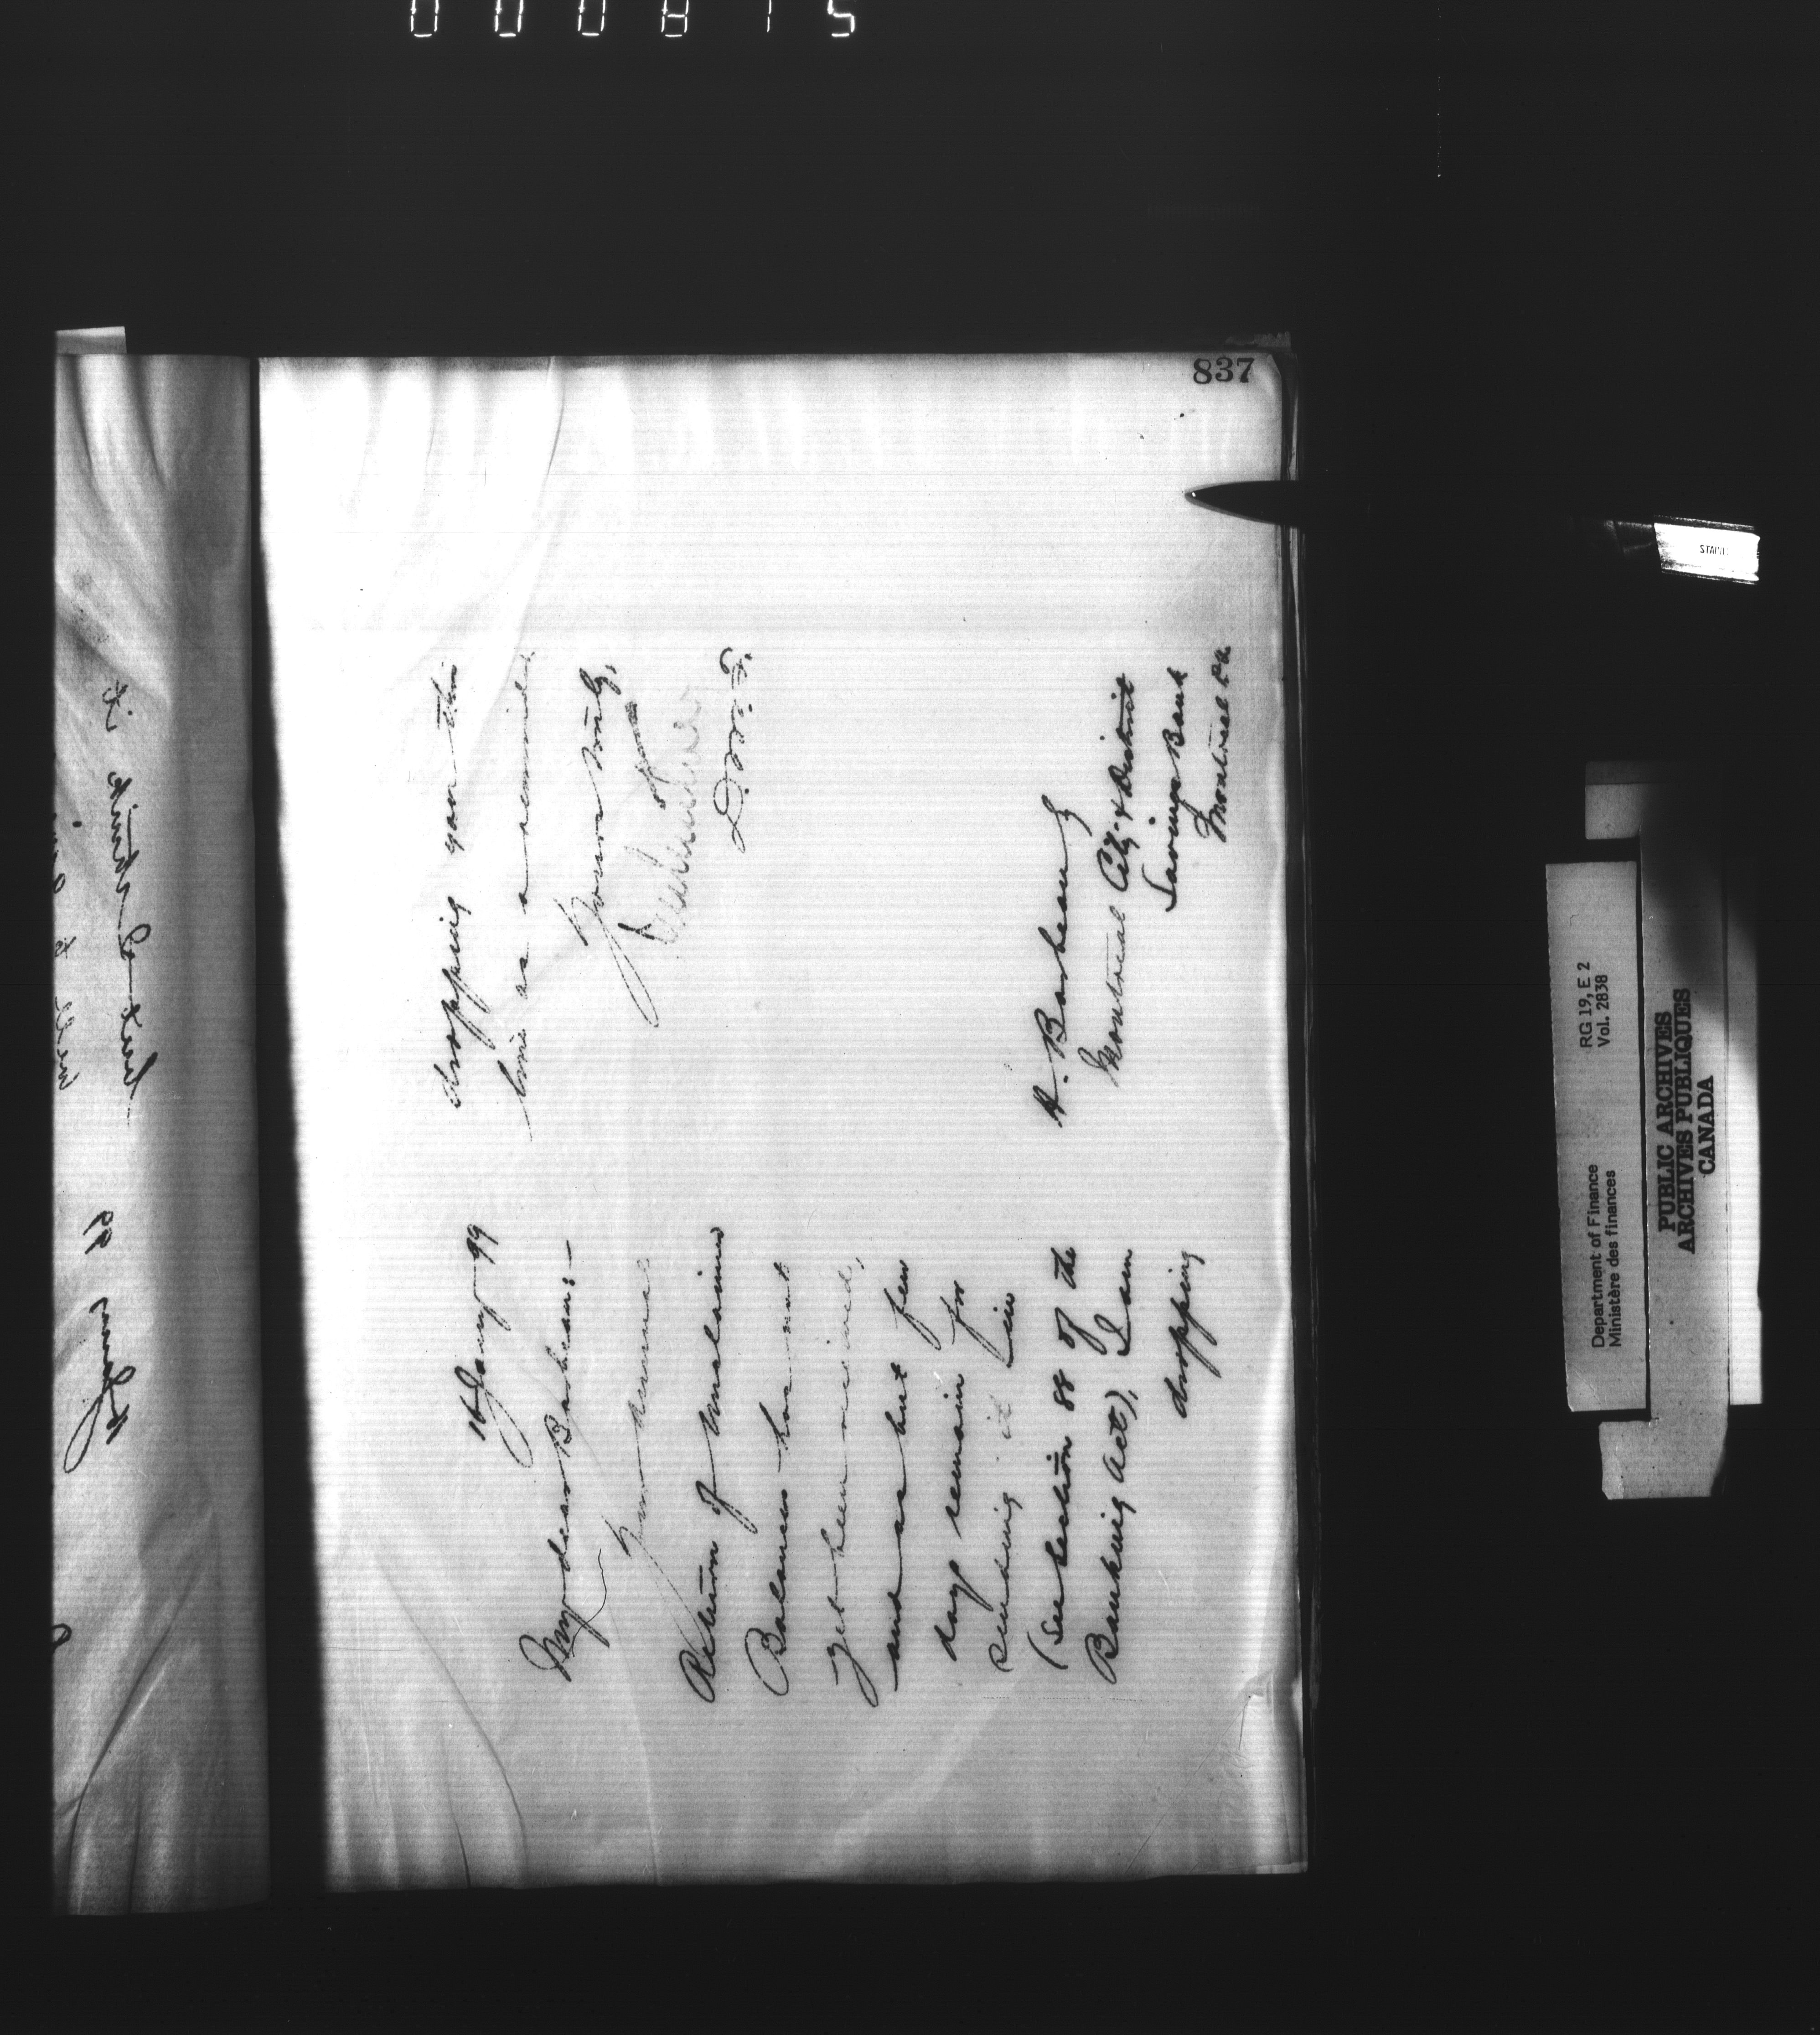 000815
837
16 Jany 99
My dear Barbeau:-
Your annual
Return of Unclaimed
Balances has not
yet been received,
and as but few
days remain for
sending it in
(See Section 88 of the
Banking Act), I am
dropping
dropping you this
line as a reminder.
Yours truly,
D.M.F.
H. Barbeau Esq
Montreal City & District
Savings Bank
Montreal P.Q.
but I think it
Jany 99
Department of Finance
Ministère des finances
RG 19, E 2
Vol. 2838
PUBLIC ARCHIVES
ARCHIVES PUBLIQUES
CANADA